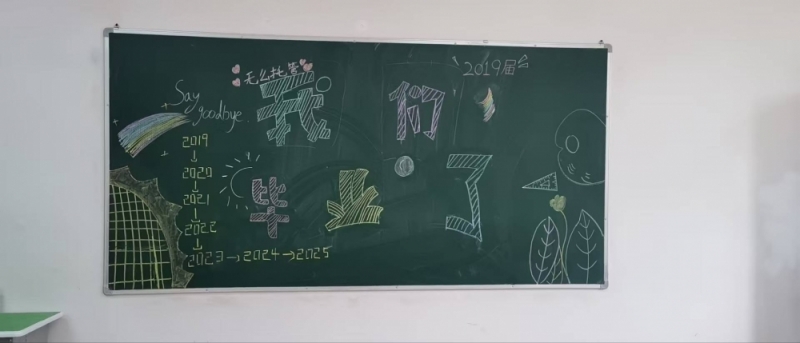 2019届
我们
Say
goodbye
毕业了
2019
↓
2020
↓
2021
↓
2022
↓
2023→2024→2025